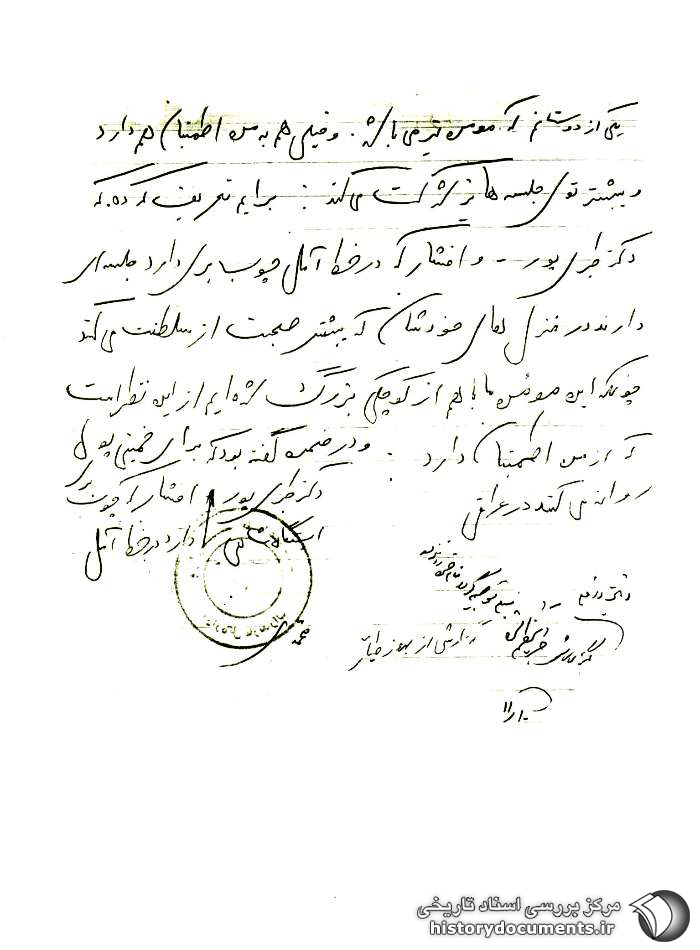 یکی از دوستانم که مومن نیز می باشد. و خیلی هم به من اطمینان هم دارد
و بیشتر توی جلسه ها نیز شرکت می کند: برایم تعریف کرده. که
دکتر طبری پور - و افشار که در خط آمل چوب بری دارد جلسه ای
دارند در منزل های خودشان که بیشتر صحبت از سلطنت می کند
چونکه این مومن ما با هم از کوچکی بزرگ شده ایم از این نظر است
که از من اطمینان دارد. و در ضمن گفته بود که برای خمینی پول
روانه می کنند در عراق
دکتر طبری پور و افشار که چوب بری
دارد در خط آمل
گزارشی از
مرکز بررسی اسناد تاریخی
historydocuments.ir